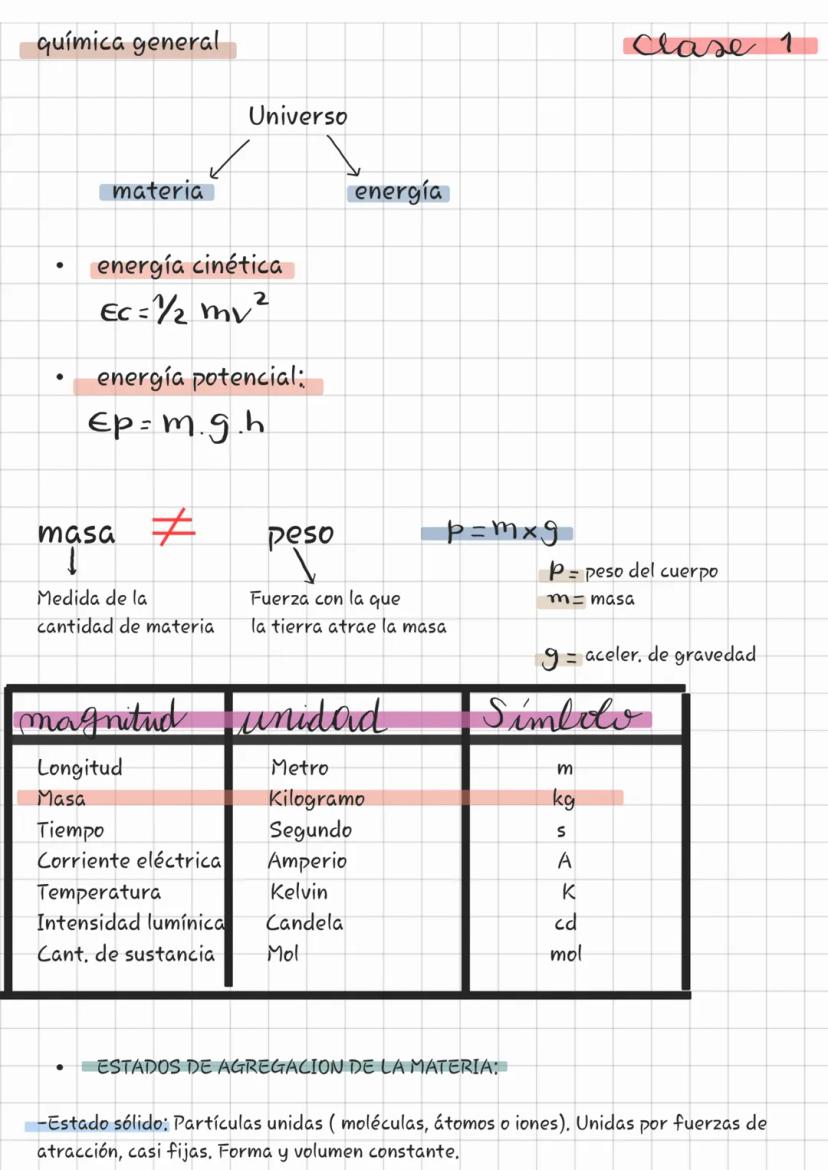 química general
Clase 1
Universo
materia energía
• energía cinética
Ec = 1/2 mv²
• energía potencial:
Ep = m.g.h
masa ≠ peso p = m x g
p = peso del cuerpo
Medida de la Fuerza con la que m = masa
cantidad de materia la tierra atrae la masa
g = aceler. de gravedad
magnitud unidad Símbolo
Longitud Metro m
Masa Kilogramo kg
Tiempo Segundo s
Corriente eléctrica Amperio A
Temperatura Kelvin K
Intensidad lumínica Candela cd
Cant. de sustancia Mol mol
• ESTADOS DE AGREGACION DE LA MATERIA:
-Estado sólido: Partículas unidas ( moléculas, átomos o iones). Unidas por fuerzas de
atracción, casi fijas. Forma y volumen constante.